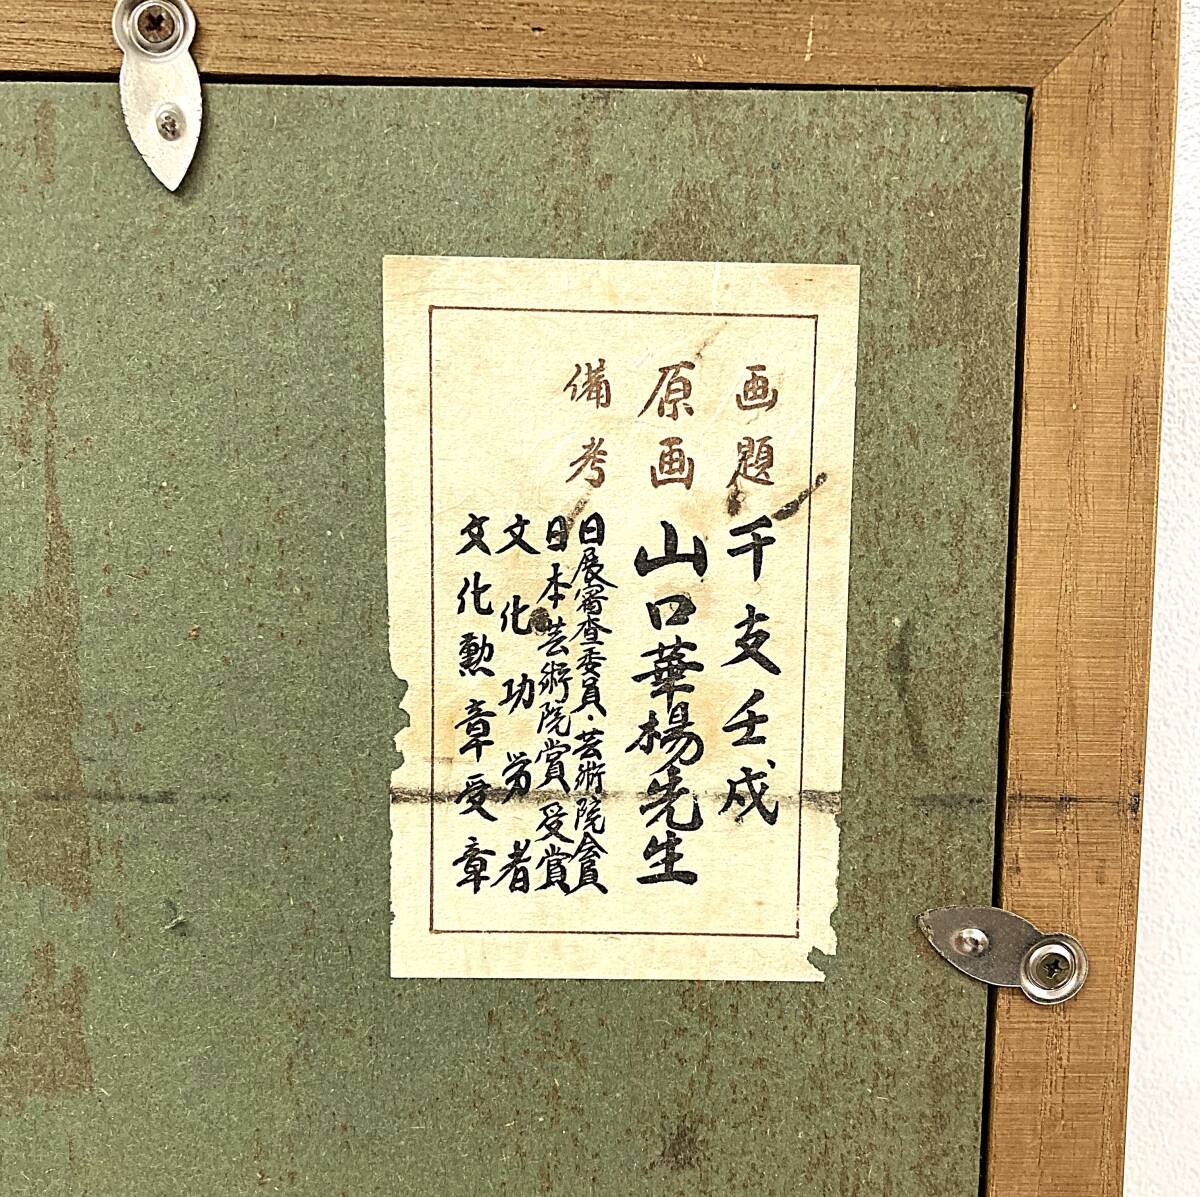 画題 干支壬戌
原画 山口華楊先生
備考 日展審査委員・芸術院会員
日本芸術院賞受賞
文化功労者
文化勲章受章